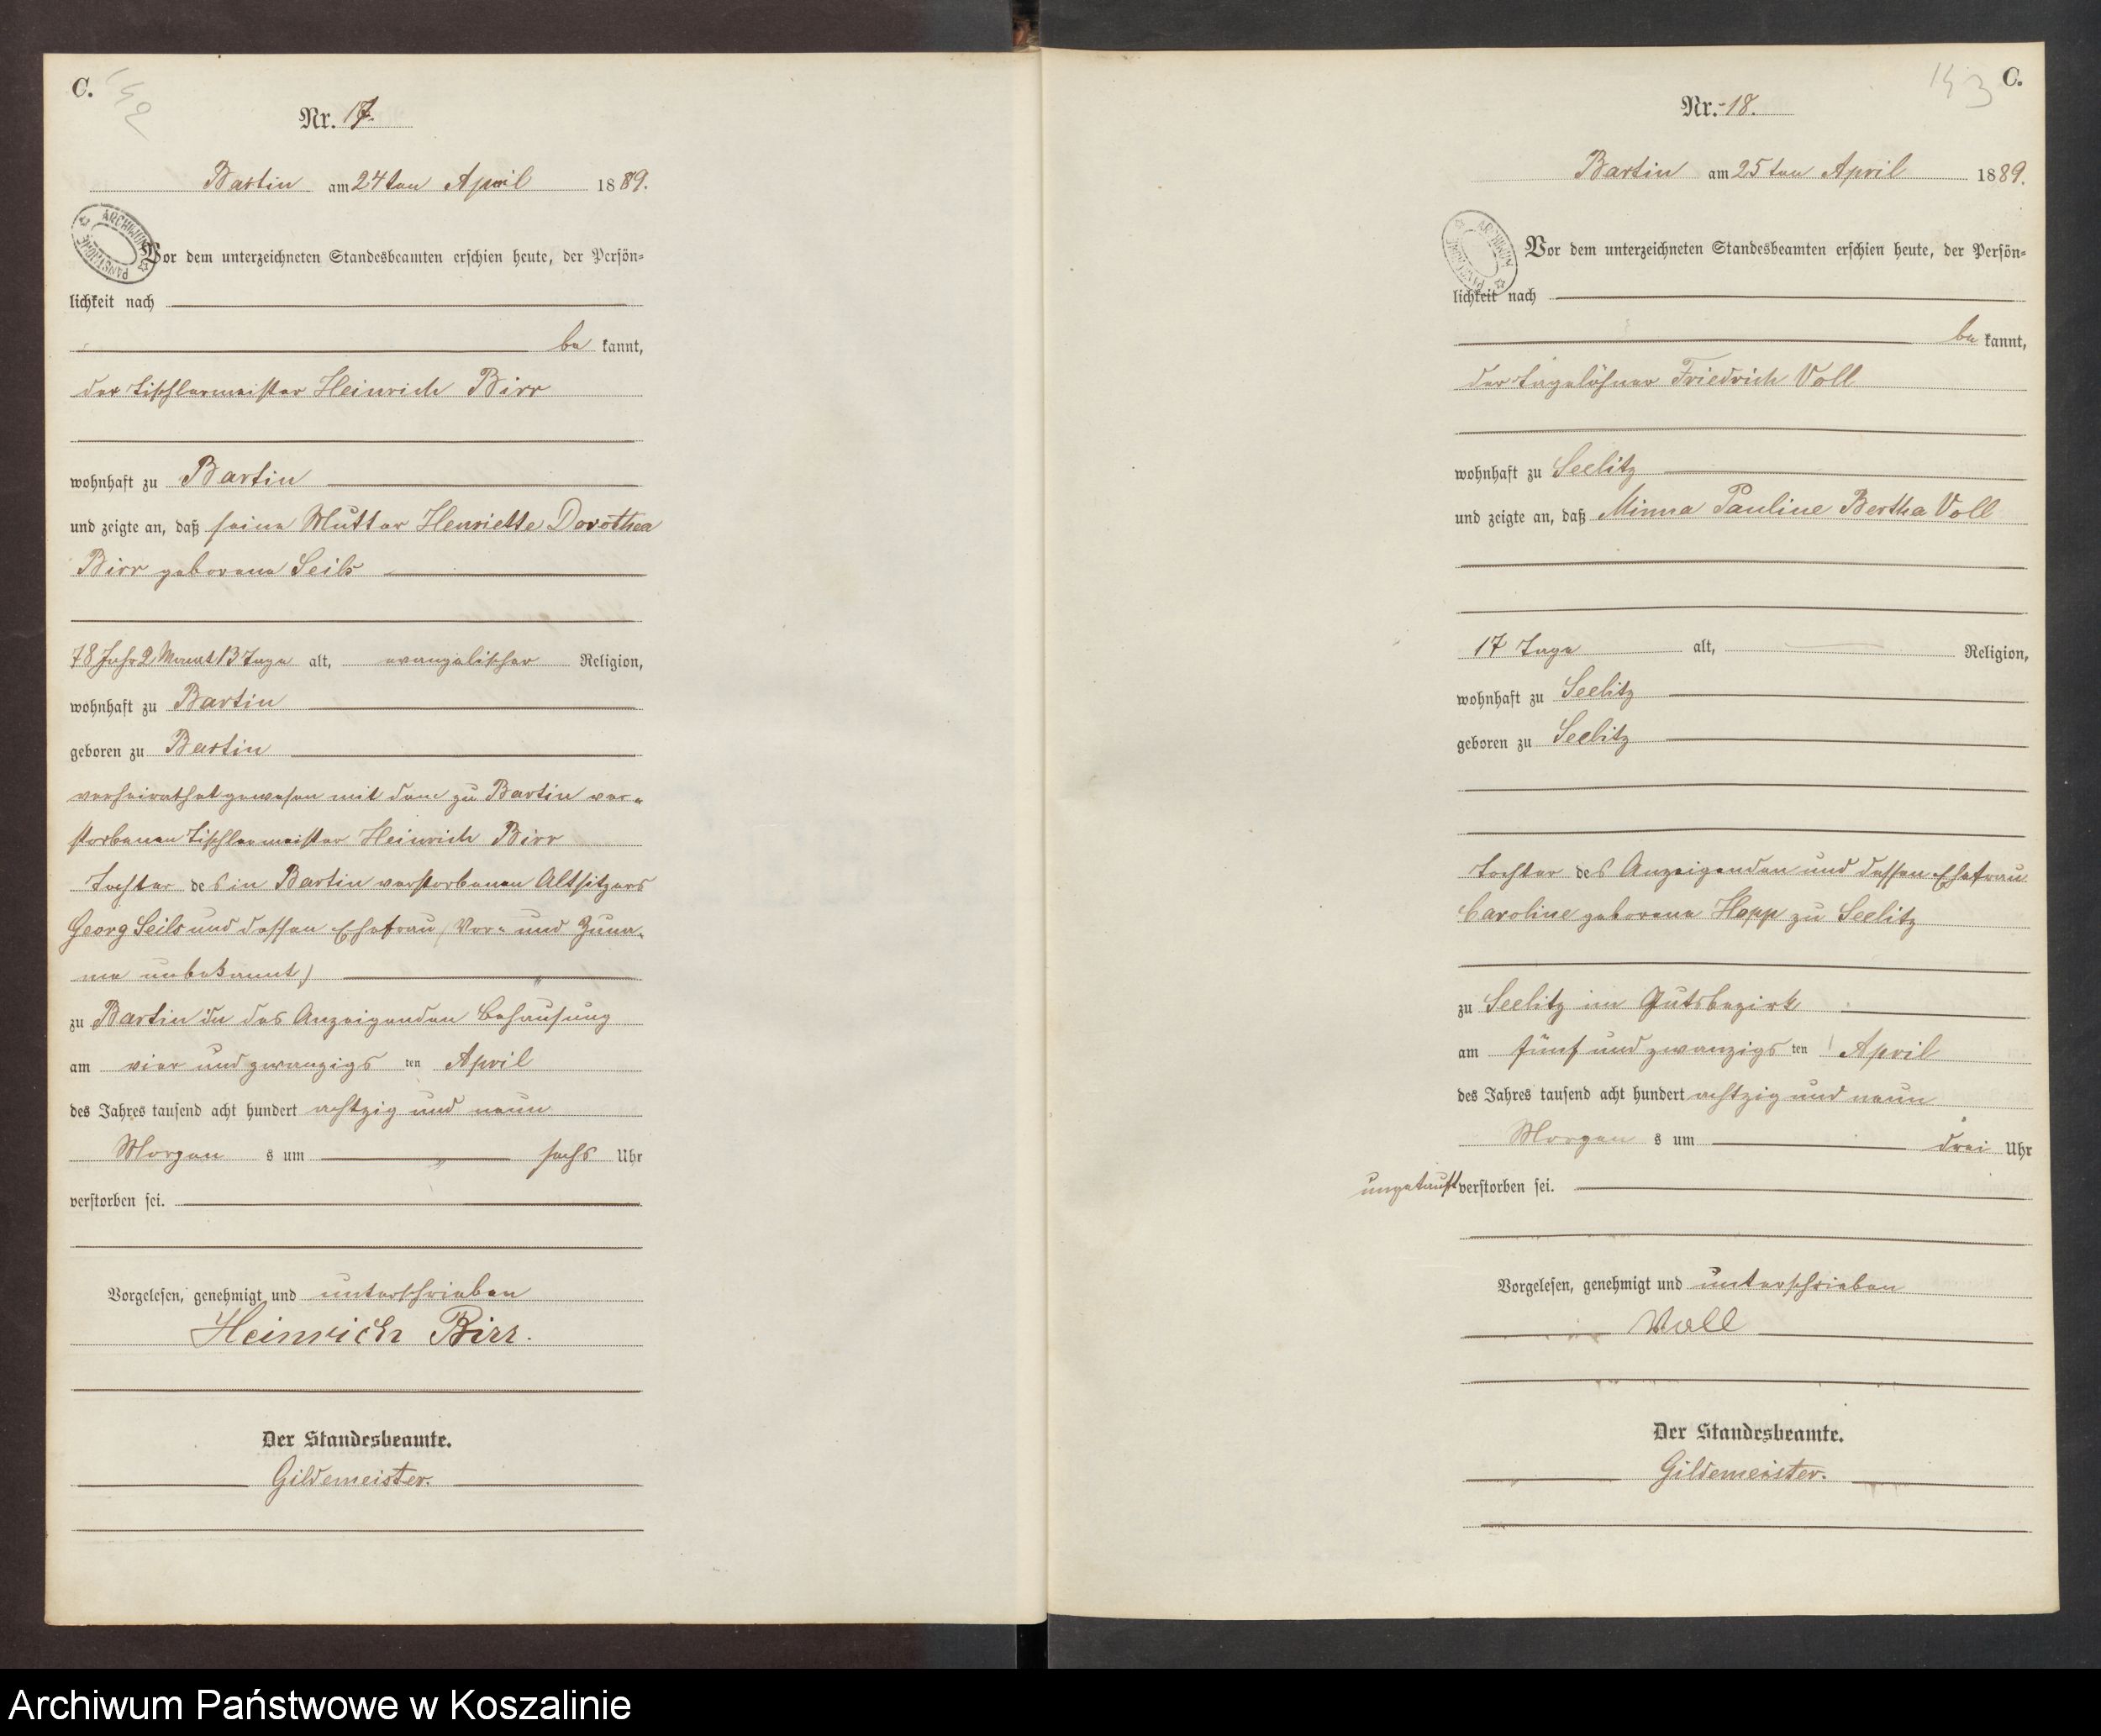 C.
142
Nr. 17.
Bartin am 24ten April 1889.
ARCHIWUM PAŃSTWOWE
Vor dem unterzeichneten Standesbeamten erschien heute, der Persön=
lichkeit nach
be kannt,
der Tischlermeister Heinrich Birr
wohnhaft zu Bartin
und zeigte an, daß seine Mutter Henriette Dorothea
Birr geborene Seils
78 Jahr 2 Monat 13 Tage alt, evangelischer Religion,
wohnhaft zu Bartin
geboren zu Bartin
verheirathet gewesen mit dem zu Bartin ver=
storbenen Tischlermeister Heinrich Birr
Tochter des in Bartin verstorbenen Altsitzers
Georg Seils und dessen Ehefrau (Vor= und Zuna=
me unbekannt)
zu Bartin in des Anzeigenden Behausung
am vier und zwanzigs ten April
des Jahres tausend acht hundert achtzig und neun
Morgen s um sechs Uhr
verstorben sei.
Vorgelesen, genehmigt und unterschrieben
Heinrich Birr.
Der Standesbeamte.
Gildemeister.
143
C.
Nr. 18.
Bartin am 25ten April 1889.
ARCHIWUM PAŃSTWOWE
Vor dem unterzeichneten Standesbeamten erschien heute, der Persön=
lichkeit nach
be kannt,
der Tagelöhner Friedrich Voll
wohnhaft zu Seelitz
und zeigte an, daß Minna Pauline Bertha Voll
17 Tage alt, Religion,
wohnhaft zu Seelitz
geboren zu Seelitz
Tochter des Anzeigenden und dessen Ehefrau
Caroline geborene Hopp zu Seelitz
zu Seelitz im Gutsbezirk
am fünf und zwanzigs ten April
des Jahres tausend acht hundert achtzig und neun
Morgen s um drei Uhr
ungetauft verstorben sei.
Vorgelesen, genehmigt und unterschrieben
Woll
Der Standesbeamte.
Gildemeister.
Archiwum Państwowe w Koszalinie